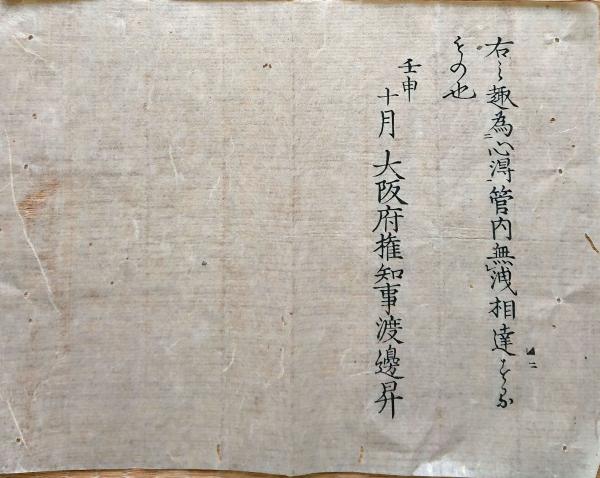 右之趣為心得管内無洩相達する
もの也
壬申
十月 大阪府権知事渡邊昇